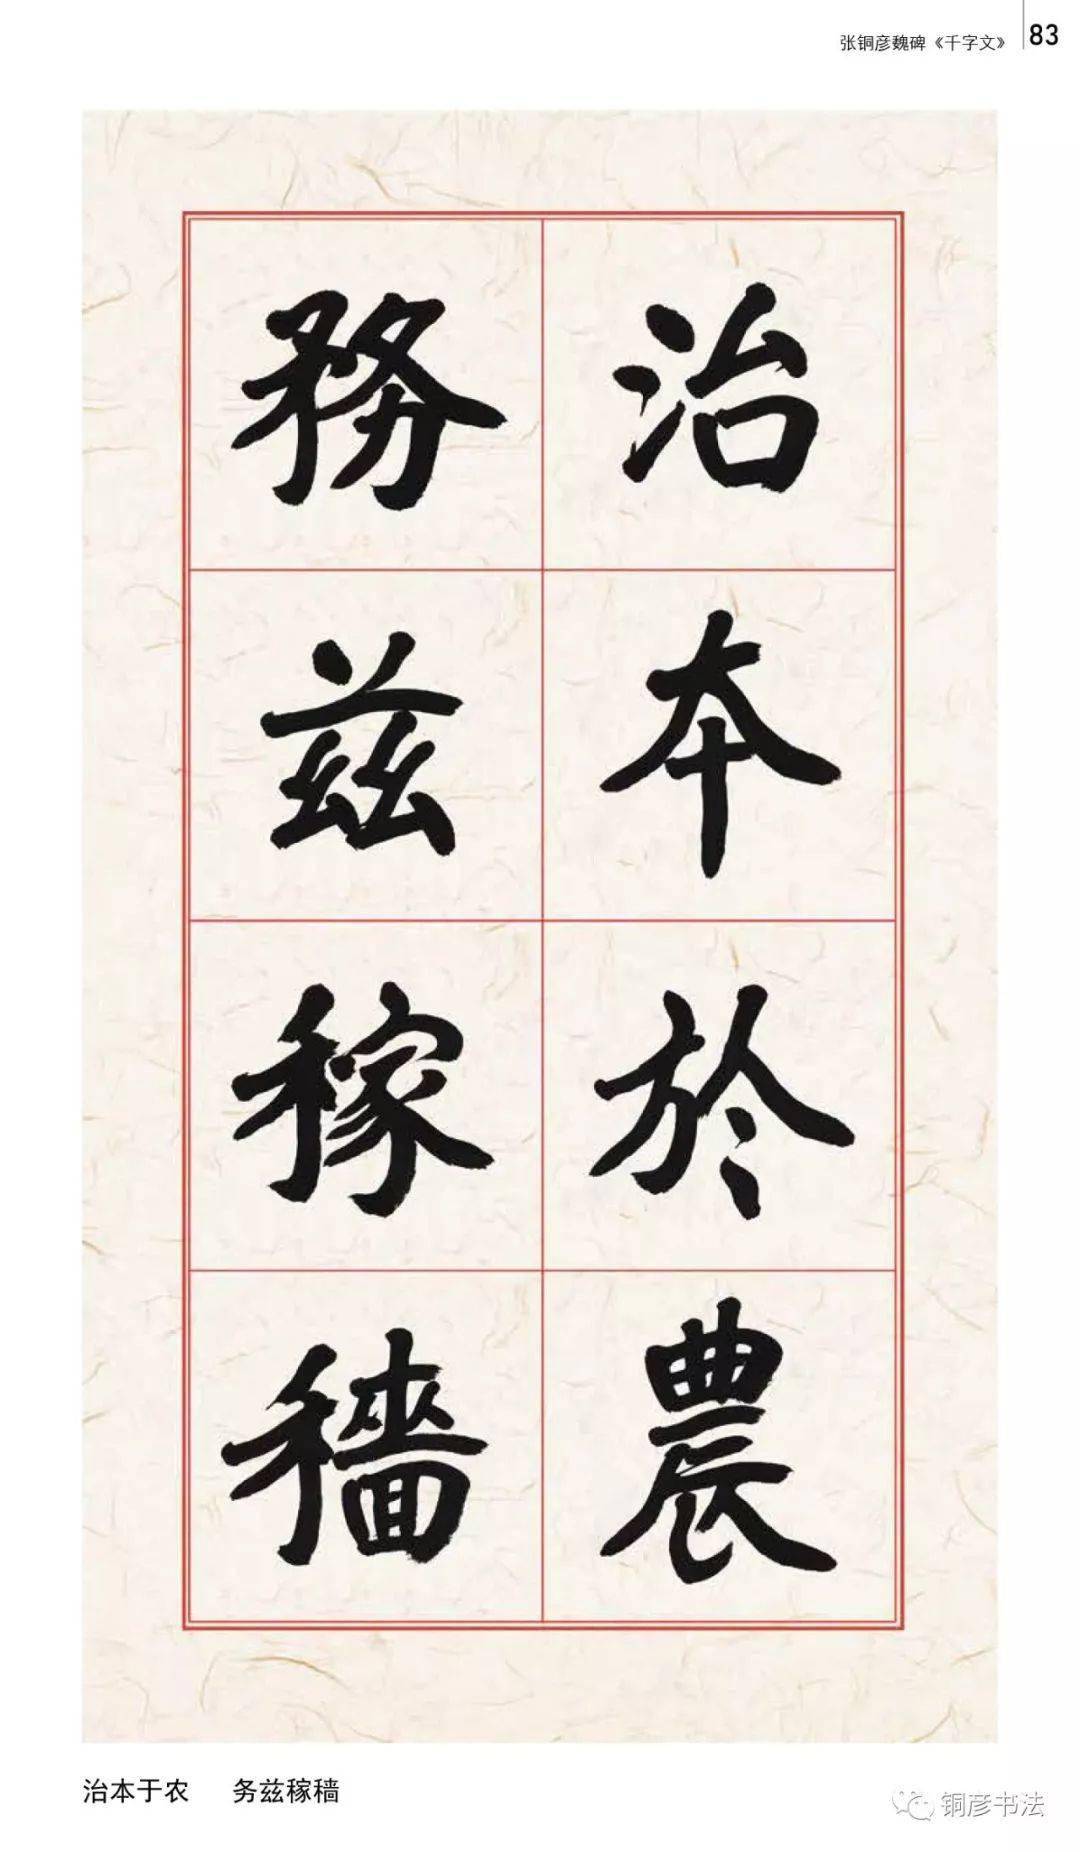 张铜彦魏碑《千字文》 83
治本於農
務茲稼穡
治本于农 务兹稼穑
铜彦书法